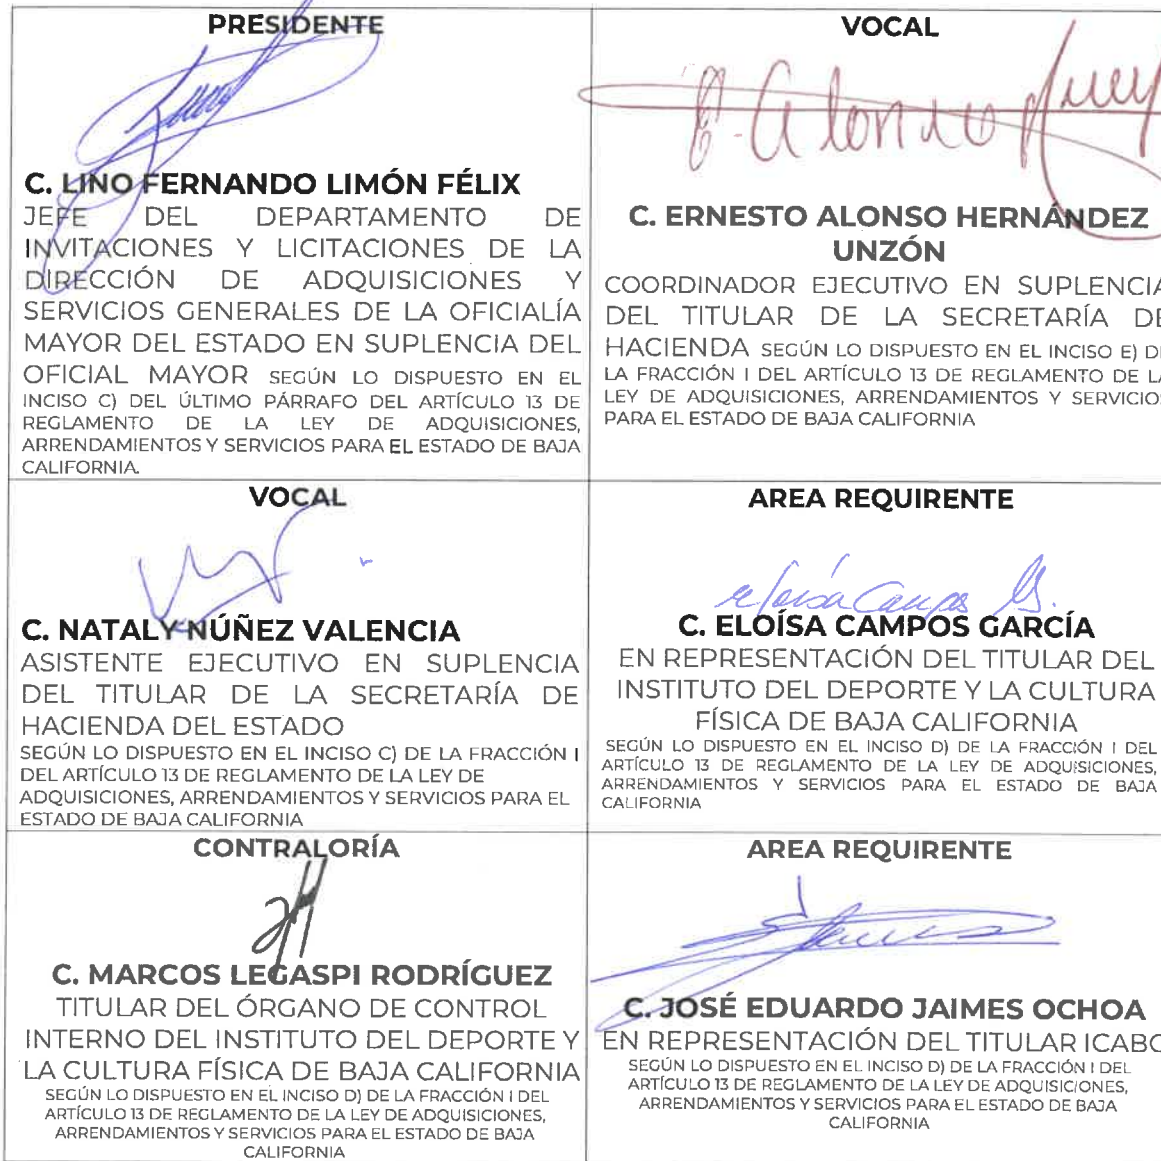 PRESIDENTE
C. LINO FERNANDO LIMÓN FÉLIX
JEFE DEL DEPARTAMENTO DE
INVITACIONES Y LICITACIONES DE LA
DIRECCIÓN DE ADQUISICIONES Y
SERVICIOS GENERALES DE LA OFICIALÍA
MAYOR DEL ESTADO EN SUPLENCIA DEL
OFICIAL MAYOR SEGÚN LO DISPUESTO EN EL
INCISO C) DEL ÚLTIMO PÁRRAFO DEL ARTÍCULO 13 DE
REGLAMENTO DE LA LEY DE ADQUISICIONES,
ARRENDAMIENTOS Y SERVICIOS PARA EL ESTADO DE BAJA
CALIFORNIA.
VOCAL
C. ERNESTO ALONSO HERNÁNDEZ
UNZÓN
COORDINADOR EJECUTIVO EN SUPLENCIA
DEL TITULAR DE LA SECRETARÍA DE
HACIENDA SEGÚN LO DISPUESTO EN EL INCISO E) DE
LA FRACCIÓN I DEL ARTÍCULO 13 DE REGLAMENTO DE LA
LEY DE ADQUISICIONES, ARRENDAMIENTOS Y SERVICIOS
PARA EL ESTADO DE BAJA CALIFORNIA
VOCAL
C. NATALY NÚÑEZ VALENCIA
ASISTENTE EJECUTIVO EN SUPLENCIA
DEL TITULAR DE LA SECRETARÍA DE
HACIENDA DEL ESTADO
SEGÚN LO DISPUESTO EN EL INCISO C) DE LA FRACCIÓN I
DEL ARTÍCULO 13 DE REGLAMENTO DE LA LEY DE
ADQUISICIONES, ARRENDAMIENTOS Y SERVICIOS PARA EL
ESTADO DE BAJA CALIFORNIA
AREA REQUIRENTE
Eloísa Campos G.
C. ELOÍSA CAMPOS GARCÍA
EN REPRESENTACIÓN DEL TITULAR DEL
INSTITUTO DEL DEPORTE Y LA CULTURA
FÍSICA DE BAJA CALIFORNIA
SEGÚN LO DISPUESTO EN EL INCISO D) DE LA FRACCIÓN I DEL
ARTÍCULO 13 DE REGLAMENTO DE LA LEY DE ADQUISICIONES,
ARRENDAMIENTOS Y SERVICIOS PARA EL ESTADO DE BAJA
CALIFORNIA
CONTRALORÍA
C. MARCOS LEGASPI RODRÍGUEZ
TITULAR DEL ÓRGANO DE CONTROL
INTERNO DEL INSTITUTO DEL DEPORTE Y
LA CULTURA FÍSICA DE BAJA CALIFORNIA
SEGÚN LO DISPUESTO EN EL INCISO D) DE LA FRACCIÓN I DEL
ARTÍCULO 13 DE REGLAMENTO DE LA LEY DE ADQUISICIONES,
ARRENDAMIENTOS Y SERVICIOS PARA EL ESTADO DE BAJA
CALIFORNIA
AREA REQUIRENTE
C. JOSÉ EDUARDO JAIMES OCHOA
EN REPRESENTACIÓN DEL TITULAR ICABC
SEGÚN LO DISPUESTO EN EL INCISO D) DE LA FRACCIÓN I DEL
ARTÍCULO 13 DE REGLAMENTO DE LA LEY DE ADQUISICIONES,
ARRENDAMIENTOS Y SERVICIOS PARA EL ESTADO DE BAJA
CALIFORNIA